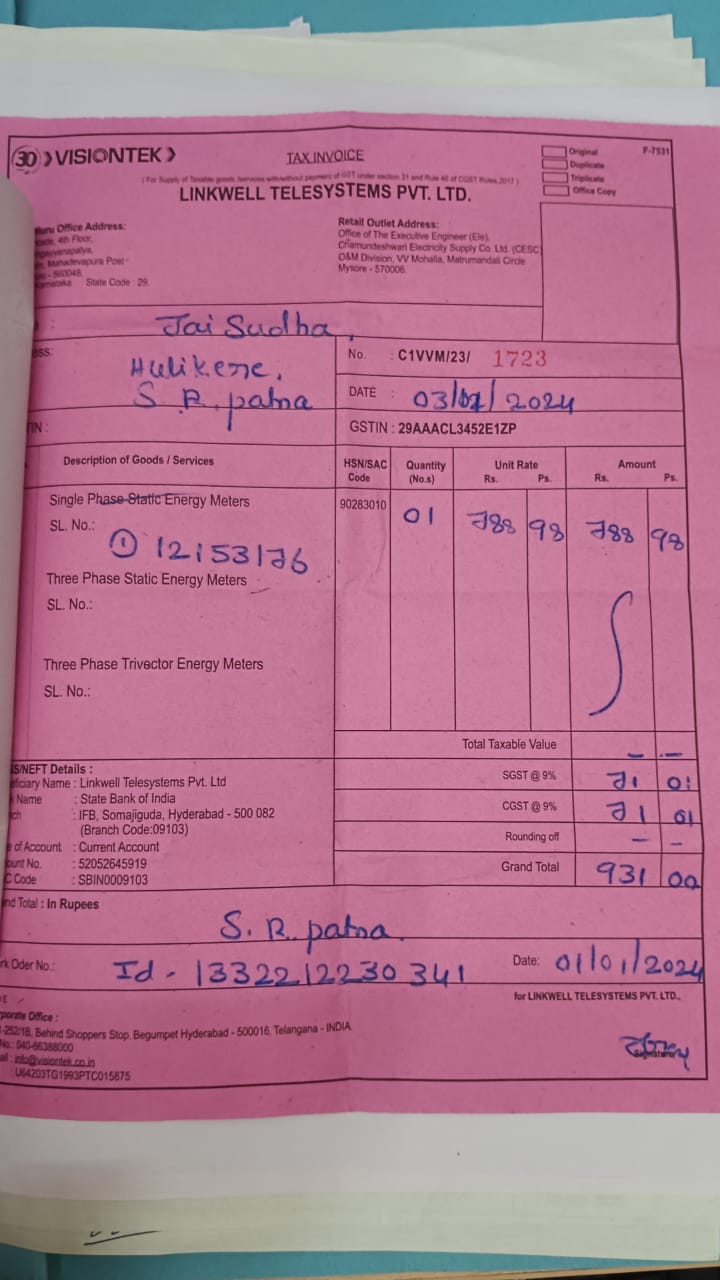 30 VISIONTEK
TAX INVOICE
Original
Duplicate
Triplicate
Office Copy
F-7531
( For Supply of Taxable goods /services with/without payment of GST under section 31 and Rule 46 of CGST Rules 2017 )
LINKWELL TELESYSTEMS PVT. LTD.
Office Address:
4th Floor,
Mahadevapura Post
560048,
State Code : 29.
Retail Outlet Address:
Office of The Executive Engineer (Ele),
Chamundeshwari Electricity Supply Co. Ltd. (CESC
O&M Division, VV Mohalla, Matrumandali Circle
Mysore - 570006.
: Jai Sudha
Hulikere,
S R. patna
No. : C1VVM/23/ 1723
DATE : 03/01/2024
GSTIN : 29AAACL3452E1ZP
Description of Goods / Services
HSN/SAC Code
Quantity (No.s)
Unit Rate Rs. Ps.
Amount Rs. Ps.
Single Phase Static Energy Meters
90283010 01 788 98 788 98
SL. No.:
① 12153176
Three Phase Static Energy Meters
SL. No.:
Three Phase Trivector Energy Meters
SL. No.:
Total Taxable Value - -
SGST @ 9% 71 01
CGST @ 9% 71 01
Rounding off - -
Grand Total 931 00
S/NEFT Details :
ficiary Name : Linkwell Telesystems Pvt. Ltd
Name : State Bank of India
ch : IFB, Somajiguda, Hyderabad - 500 082
(Branch Code:09103)
e of Account : Current Account
ount No. : 52052645919
C Code : SBIN0009103
nd Total : In Rupees
S. R. patna
rk Oder No.: Id - 1332212230341
Date: 01/01/2024
for LINKWELL TELESYSTEMS PVT. LTD.,
porate Office :
-252/1B, Behind Shoppers Stop, Begumpet Hyderabad - 500016, Telangana - INDIA.
No.: 040-66388000
ail : info@visiontek.co.in
: U64203TG1993PTC015875
Signature